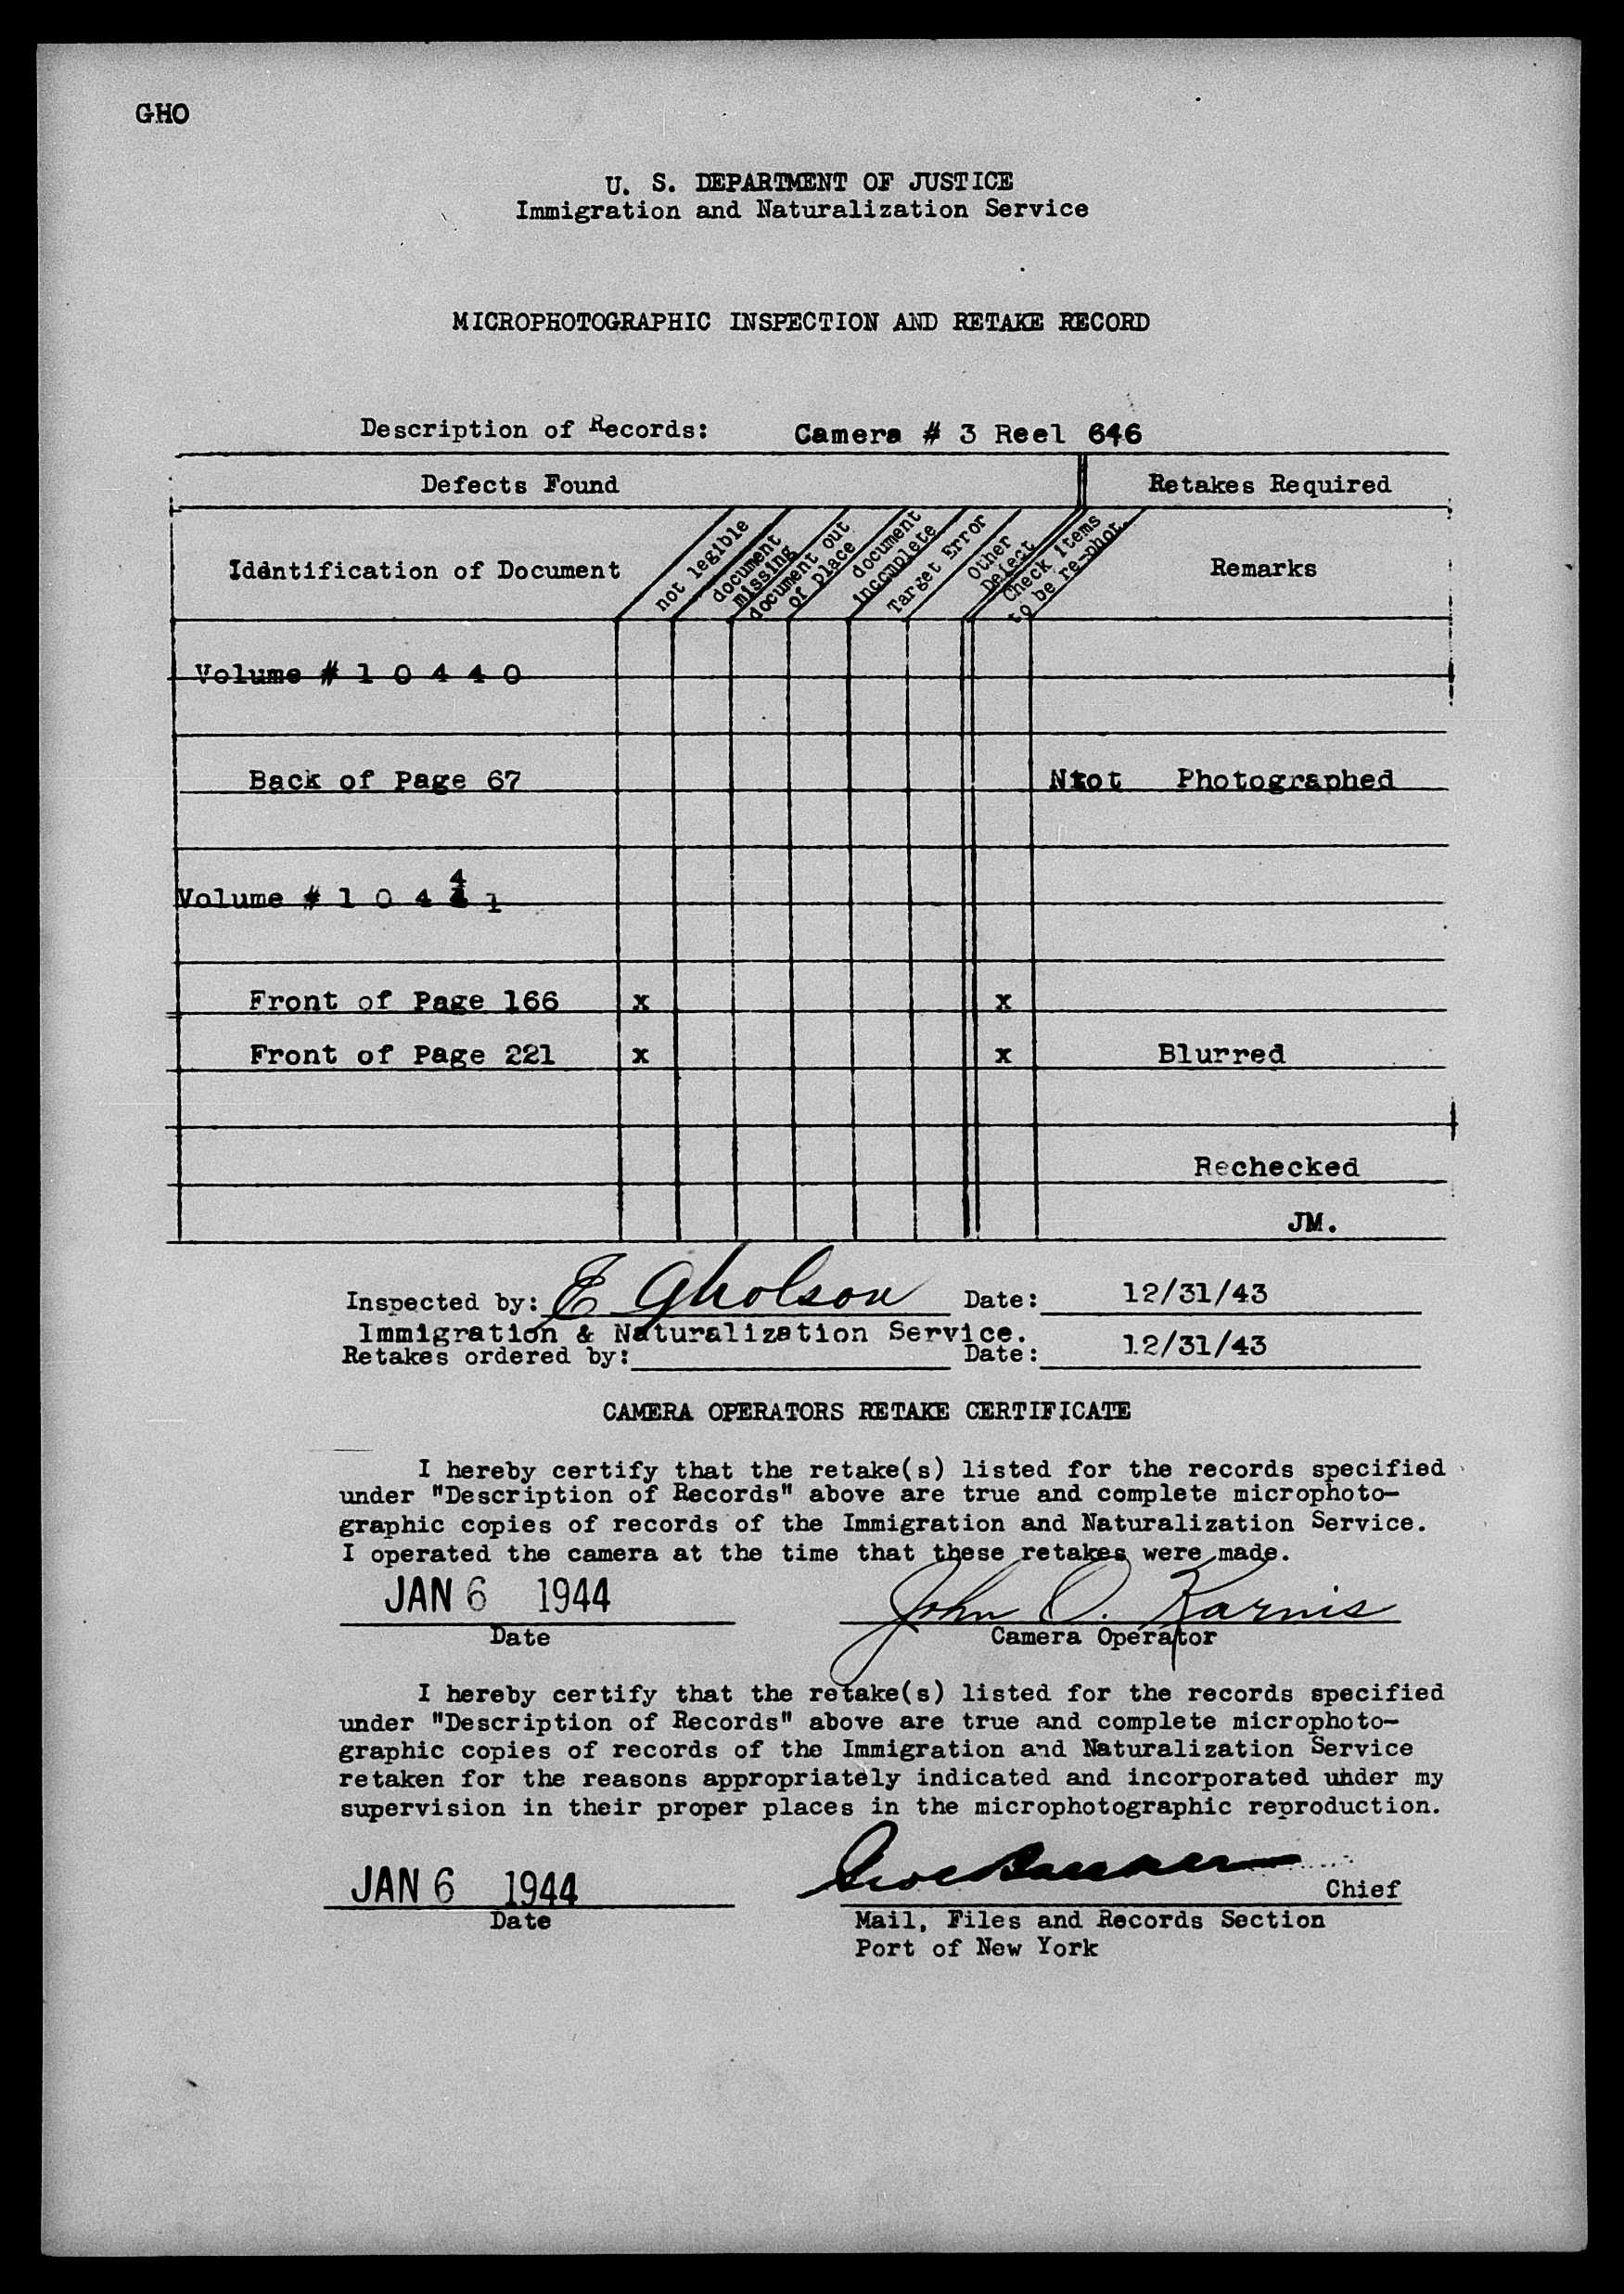 GHO
U. S. DEPARTMENT OF JUSTICE
Immigration and Naturalization Service
MICROPHOTOGRAPHIC INSPECTION AND RETAKE RECORD
Description of Records: Camera # 3 Reel 646
Defects Found Retakes Required
Identification of Document
not legible
document
missing
document out
of place
document
incomplete
Target Error
Other
Defect
Check items
to be re-phot.
Remarks
Volume # 1 0 4 4 0
Back of Page 67 Ntot Photographed
4
Volume # 1 0 4 4 1
Front of Page 166 x x
Front of Page 221 x x Blurred
Rechecked
JM.
Inspected by: E Gholson Date: 12/31/43
Immigration & Naturalization Service.
Retakes ordered by: Date: 12/31/43
CAMERA OPERATORS RETAKE CERTIFICATE
I hereby certify that the retake(s) listed for the records specified
under "Description of Records" above are true and complete microphoto-
graphic copies of records of the Immigration and Naturalization Service.
I operated the camera at the time that these retakes were made.
JAN 6 1944 John O. Karnis
Date Camera Operator
I hereby certify that the retake(s) listed for the records specified
under "Description of Records" above are true and complete microphoto-
graphic copies of records of the Immigration and Naturalization Service
retaken for the reasons appropriately indicated and incorporated uhder my
supervision in their proper places in the microphotographic reproduction.
JAN 6 1944 Chief
Date Mail, Files and Records Section
Port of New York